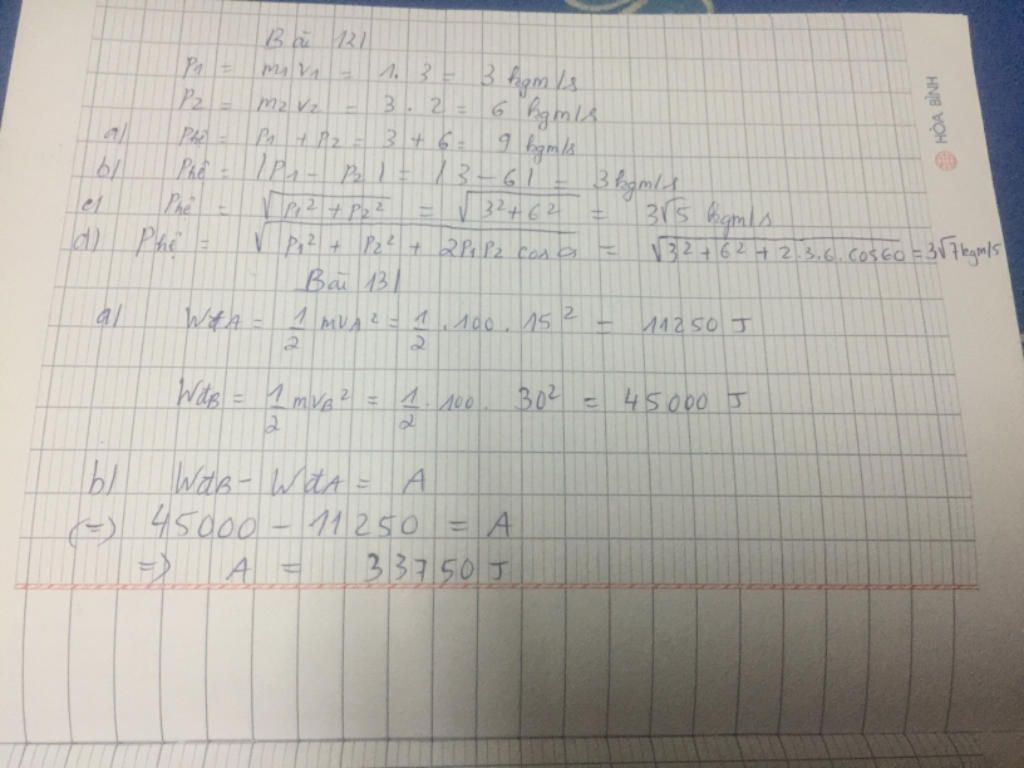 Bài 12/
P1 = m1v1 = 1. 3 = 3 kgm/s
P2 = m2v2 = 3 . 2 = 6 kgm/s
a/ Phệ = P1 + P2 = 3 + 6 = 9 kgm/s
b/ Phệ = |P1 - P2| = |3-6| = 3kgm/s
c/ Phệ = √(P1² + P2²) = √(3²+6²) = 3√5 kgm/s
d/ Phệ = √(P1² + P2² + 2P1P2 cos α) = √(3²+6²+2.3.6.cos60) = 3√7 kgm/s
Bài 13/
a/ WđA = 1/2 mvA² = 1/2 .100 . 15² = 11250 J
WđB = 1/2 mvB² = 1/2 . 100 . 30² = 45000 J
b/ WđB - WđA = A
(=) 45000 - 11250 = A
=) A = 33750 J
HÒA BÌNH